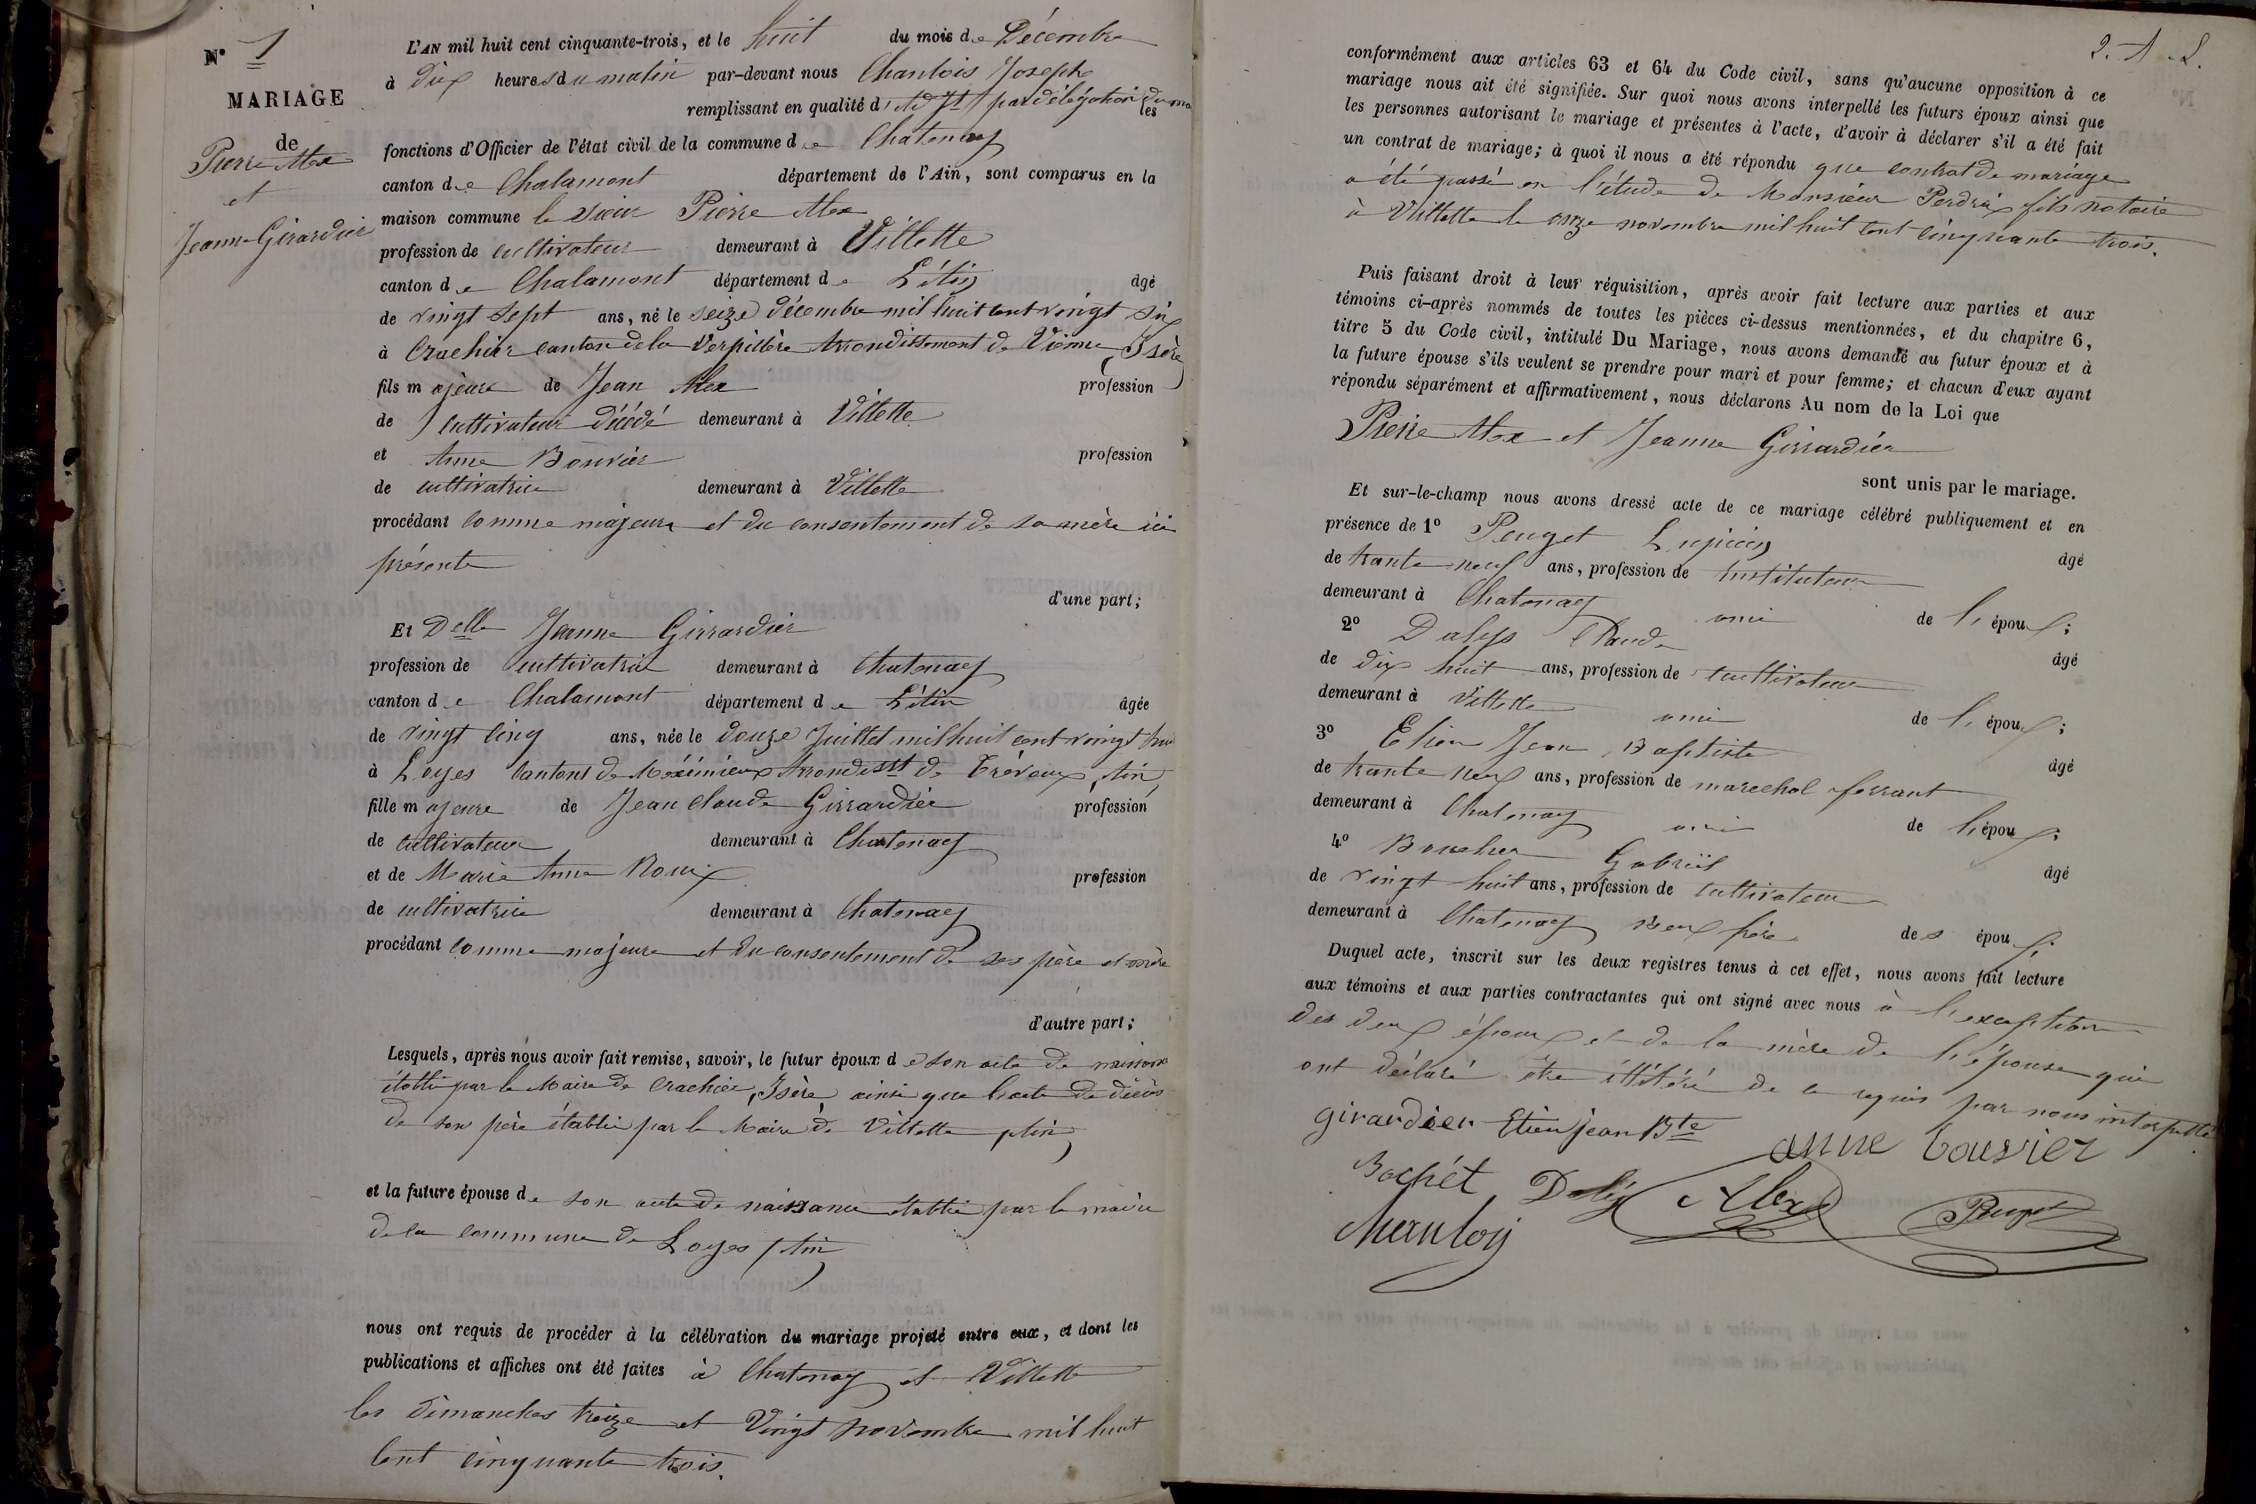 N° 1
MARIAGE
de
Pierre Alex
et
Jeanne Girardier
L'AN mil huit cent cinquante-trois, et le huit du mois de Décembre
à dix heures du matin par-devant nous Chanlois Joseph
remplissant en qualité d'Adjt par délégation du ma les
fonctions d'Officier de l'état civil de la commune de Chatenay
canton de Chalamont département de l'Ain, sont comparus en la
maison commune le sieur Pierre Alex
profession de cultivateur demeurant à Villette
canton de Chalamont département de L'Ain âgé
de vingt sept ans, né le seize décembre mil huit cent vingt six
à Crachier canton de la Verpillère Arrondissement de Vienne, Isère
fils majeur de Jean Alex profession
de cultivateur décédé demeurant à Villette
et Anne Bouvier profession
de cultivatrice demeurant à Villette
procédant comme majeure et du consentement de sa mère ici
présente
d'une part;
Et Delle Jeanne Girrardier
profession de cultivatrice demeurant à Chatenay
canton de Chalamont département de L'Ain âgée
de vingt cinq ans, née le douze Juillet mil huit cent vingt huit
à Loyes Cantons de Meximieux Arrondisst de Trévoux, Ain
fille majeure de Jean Claude Girrardier profession
de cultivateur demeurant à Chatenay
et de Marie Anne Roux profession
de cultivatrice demeurant à Chatenay
procédant comme majeure et du consentement de ses père et mère
d'autre part;
Lesquels, après nous avoir fait remise, savoir, le futur époux de son acte de naissance
établi par le Maire de Crachier, Isère, ainsi que l'acte de décès
de son père établi par le Maire de Villette, Ain
et la future épouse de son acte de naissance établi par le maire
de la commune de Loyes, Ain
nous ont requis de procéder à la célébration du mariage projeté entre eux, et dont les
publications et affiches ont été faites à Chatenay et Villette
les dimanches treize et Vingt novembre mil huit
Cent cinquante trois.
conformément aux articles 63 et 64 du Code civil, sans qu'aucune opposition à ce
mariage nous ait été signifiée. Sur quoi nous avons interpellé les futurs époux ainsi que
les personnes autorisant le mariage et présentes à l'acte, d'avoir à déclarer s'il a été fait
un contrat de mariage; à quoi il nous a été répondu que contrat de mariage
a été passé en l'étude de Monsieur Perdrix fils notaire
à Villette le onze novembre mil huit cent cinquante trois.
Puis faisant droit à leur réquisition, après avoir fait lecture aux parties et aux
témoins ci-après nommés de toutes les pièces ci-dessus mentionnées, et du chapitre 6,
titre 5 du Code civil, intitulé Du Mariage, nous avons demandé au futur époux et à
la future épouse s'ils veulent se prendre pour mari et pour femme; et chacun d'eux ayant
répondu séparément et affirmativement, nous déclarons Au nom de la Loi que
Pierre Alex et Jeanne Girrardier
sont unis par le mariage.
Et sur-le-champ nous avons dressé acte de ce mariage célébré publiquement et en
présence de 1° Peuget Lupicin âgé
de trente neuf ans, profession de Instituteur
demeurant à Chatenay ami de l'époux;
2° Dalys Claude âgé
de dix huit ans, profession de cultivateur
demeurant à Villette ami de l'époux;
3° Etien Jean Baptiste âgé
de trente neuf ans, profession de marechal ferrant
demeurant à Chatenay ami de l'époux;
4° Boucher Gabriël âgé
de vingt huit ans, profession de cultivateur
demeurant à Chatenay Beau frère des époux;
Duquel acte, inscrit sur les deux registres tenus à cet effet, nous avons fait lecture
aux témoins et aux parties contractantes qui ont signé avec nous à l'exception
des deux époux et de la mère de l'épouse qui
ont déclaré être illétéré de ce requis par nous interpellé
girardier Etien jean Bte anne bouvier
Bochét Dalys Alex Peuget
Chanloy